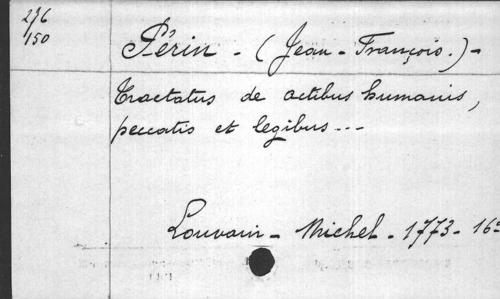 276
150
Périn - (Jean-François.)-
Tractatus de actibus humanis,
peccatis et legibus ---
Louvain - Michel - 1773 - 16º